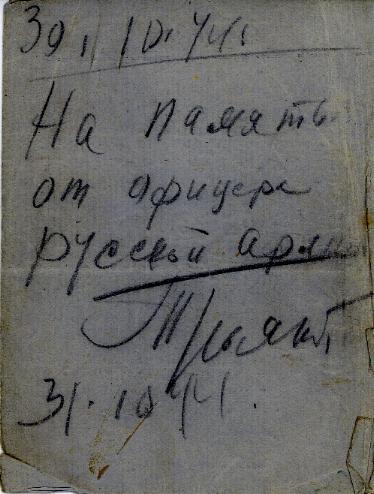 30.10.44.
На память
от офицера
русской армии
31.10.44.